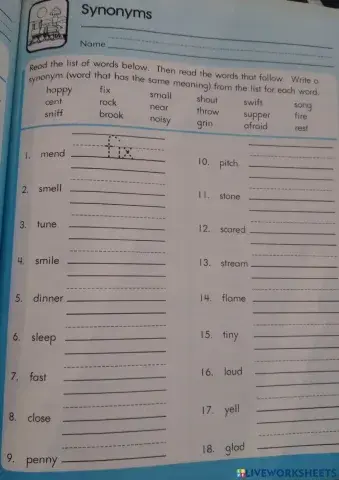 Synonyms
Name
Read the list of words below. Then read the words that follow. Write a
synonym (word that has the same meaning) from the list for each word.
happy fix small shout swift song
cent rock near throw supper fire
sniff brook noisy grin afraid rest
1. mend fix
2. smell
3. tune
4. smile
5. dinner
6. sleep
7. fast
8. close
9. penny
10. pitch
11. stone
12. scared
13. stream
14. flame
15. tiny
16. loud
17. yell
18. glad
LIVEWORKSHEETS